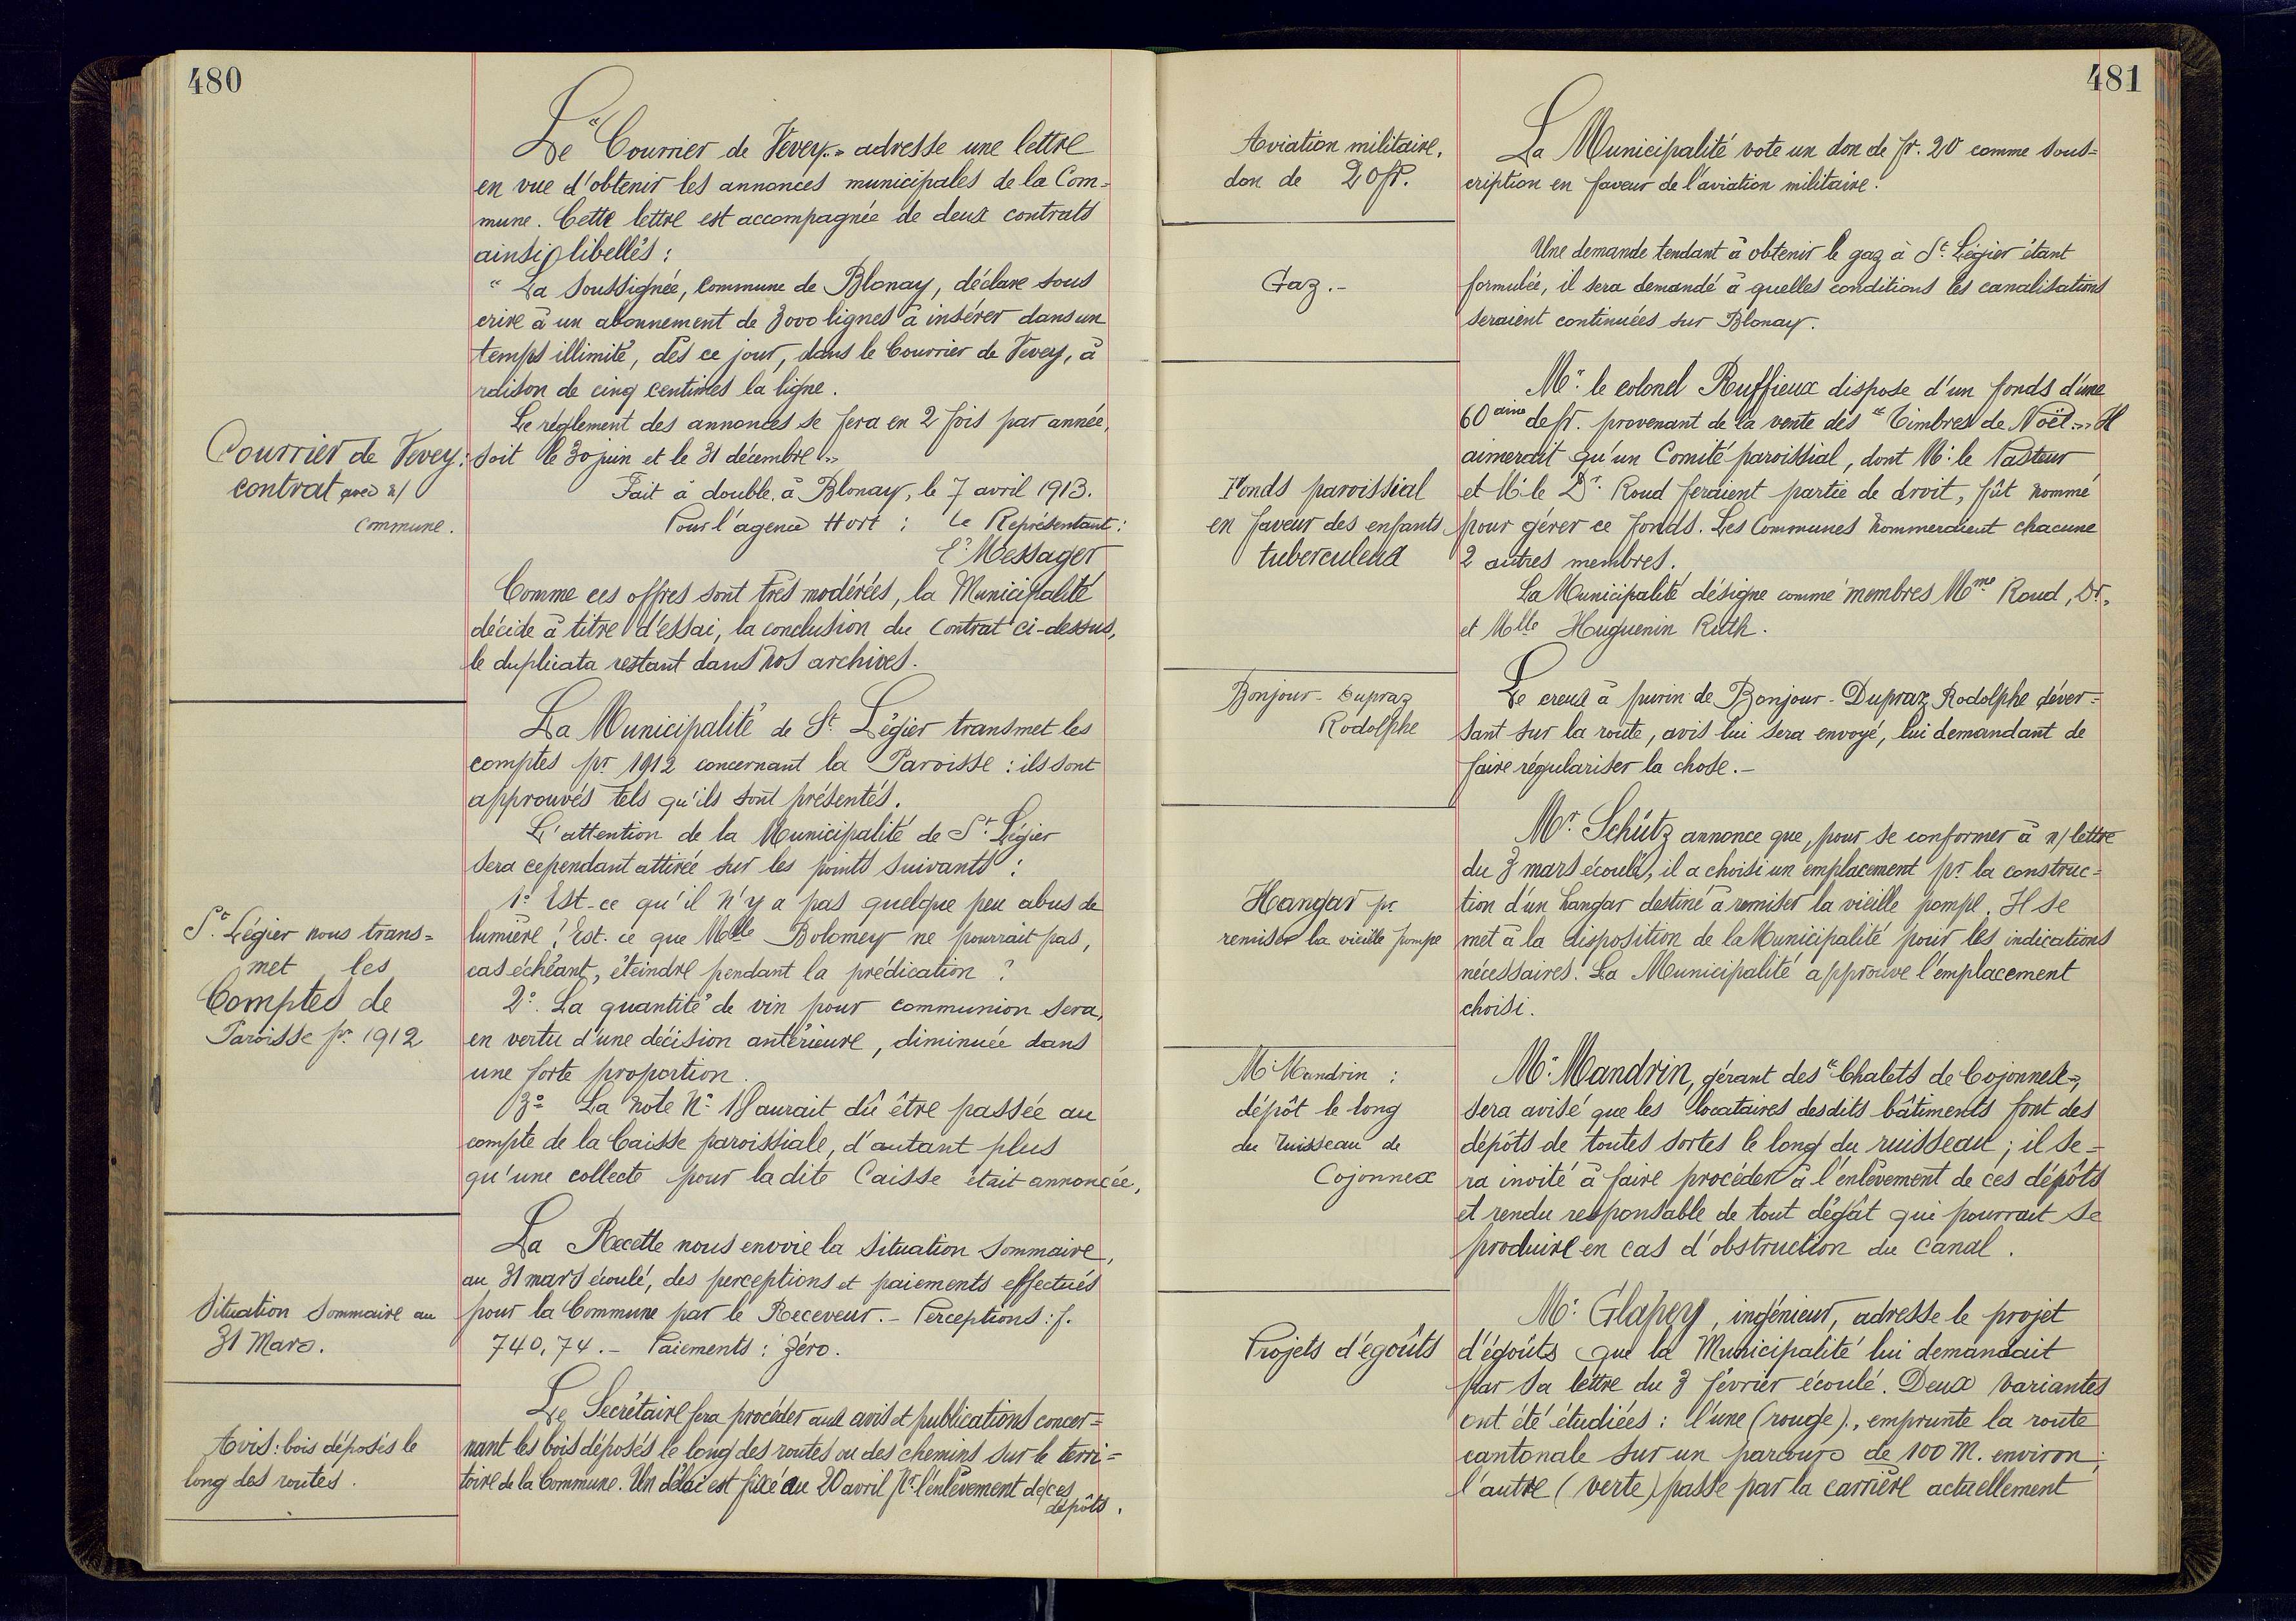 480
Le "Courrier de Vevey" adresse une lettre
en vue d'obtenir les annonces municipales de la Com=
mune. Cette lettre est accompagnée de deux contrats
ainsi libellés :
" La soussignée, Commune de Blonay, déclare sous
crire à un abonnement de 3000 lignes à insérer dans un
temps illimité, dès ce jour, dans le Courrier de Vevey, à
raison de cinq centimes la ligne.
Le règlement des annonces se fera en 2 fois par année,
Courrier de Vevey :
contrat avec n/
Commune.
soit le 30 juin et le 31 décembre "
Fait à double, à Blonay, le 7 avril 1913.
Pour l'agence Hort : Le Représentant :
Messager
Comme ces offres sont très modérées, la Municipalité
décide à titre d'essai, la conclusion du contrat ci-dessus,
le duplicata restant dans nos archives.
La Municipalité de St Légier transmet les
comptes pr 1912 concernant la Paroisse : ils sont
approuvés tels qu'ils sont présentés.
L'attention de la Municipalité de St. Légier
sera cependant attirée sur les points suivants :
1° Est-ce qu'il n'y a pas quelque peu abus de
St. Légier nous trans=
met les
Comptes de
Paroisse pr. 1912
lumière ? Est-ce que Melle Bolomey ne pourrait pas,
cas échéant, éteindre pendant la prédication ?
2°. La quantité de vin pour communion sera,
en vertu d'une décision antérieure, diminuée dans
une forte proportion.
3° La note N° 18 aurait dû être passée au
compte de la Caisse paroissiale, d'autant plus
qu'une collecte pour ladite Caisse était annoncée.
La Recette nous envoie la situation sommaire,
au 31 mars écoulé, des perceptions et paiements effectués
Situation sommaire au
31 Mars.
pour la Commune par le Receveur. - Perceptions : f.
740,74. - Paiements : Zéro.
Le Secrétaire fera procéder aux avis et publications concer=
Avis : bois déposés le
long des routes.
nant les bois déposés le long des routes ou des chemins sur le terri=
toire de la Commune. Un délai est fixé au 20 avril pr. l'enlèvement de ces
dépôts.
481
Aviation militaire,
don de 20 fr.
La Municipalité vote un don de fr. 20 comme sous=
cription en faveur de l'aviation militaire.
Gaz. -
Une demande tendant à obtenir le gaz à St. Légier étant
formulée, il sera demandé à quelles conditions les canalisations
seraient continuées sur Blonay.
Mr. le colonel Ruffieux dispose d'un fonds d'une
60aine de fr. provenant de la vente des "Timbres de Noël". Il
aimerait qu'un Comité paroissial, dont Mr. le Pasteur
Fonds paroissial
en faveur des enfants
tuberculeux
et Mr. le Dr. Roud feraient partie de droit, fût nommé
pour gérer ce fonds. Les Communes nommeraient chacune
2 autres membres.
La Municipalité désigne comme membres Mme Roud, Dr.,
et Mlle Huguenin Ruth.
Bonjour-Dupraz
Rodolphe
Le creux à purin de Bonjour-Dupraz Rodolphe déver=
sant sur la route, avis lui sera envoyé, lui demandant de
faire régulariser la chose. -
Mr. Schütz annonce que, pour se conformer à n/ lettre
du 3 mars écoulé, il a choisi un emplacement pr. la construc=
Hangar pr.
remiser la vieille pompe
tion d'un hangar destiné à remiser la vieille pompe. Il se
met à la disposition de la Municipalité pour les indications
nécessaires. La Municipalité approuve l'emplacement
choisi.
Mr Mandrin :
dépôt le long
du ruisseau de
Cojonnex
Mr. Mandrin, gérant des "Chalets de Cojonnex",
sera avisé que les locataires desdits bâtiments font des
dépôts de toutes sortes le long du ruisseau ; il se=
ra invité à faire procéder à l'enlèvement de ces dépôts
et rendu responsable de tout dégât qui pourrait se
produire en cas d'obstruction du canal.
Projets d'égoûts
Mr. Glapey, ingénieur, adresse le projet
d'égoûts que la Municipalité lui demandait
par sa lettre du 3 février écoulé. Deux variantes
ont été étudiées : l'une (rouge), emprunte la route
cantonale sur un parcours de 100 M. environ ;
l'autre (verte) passe par la carrière actuellement